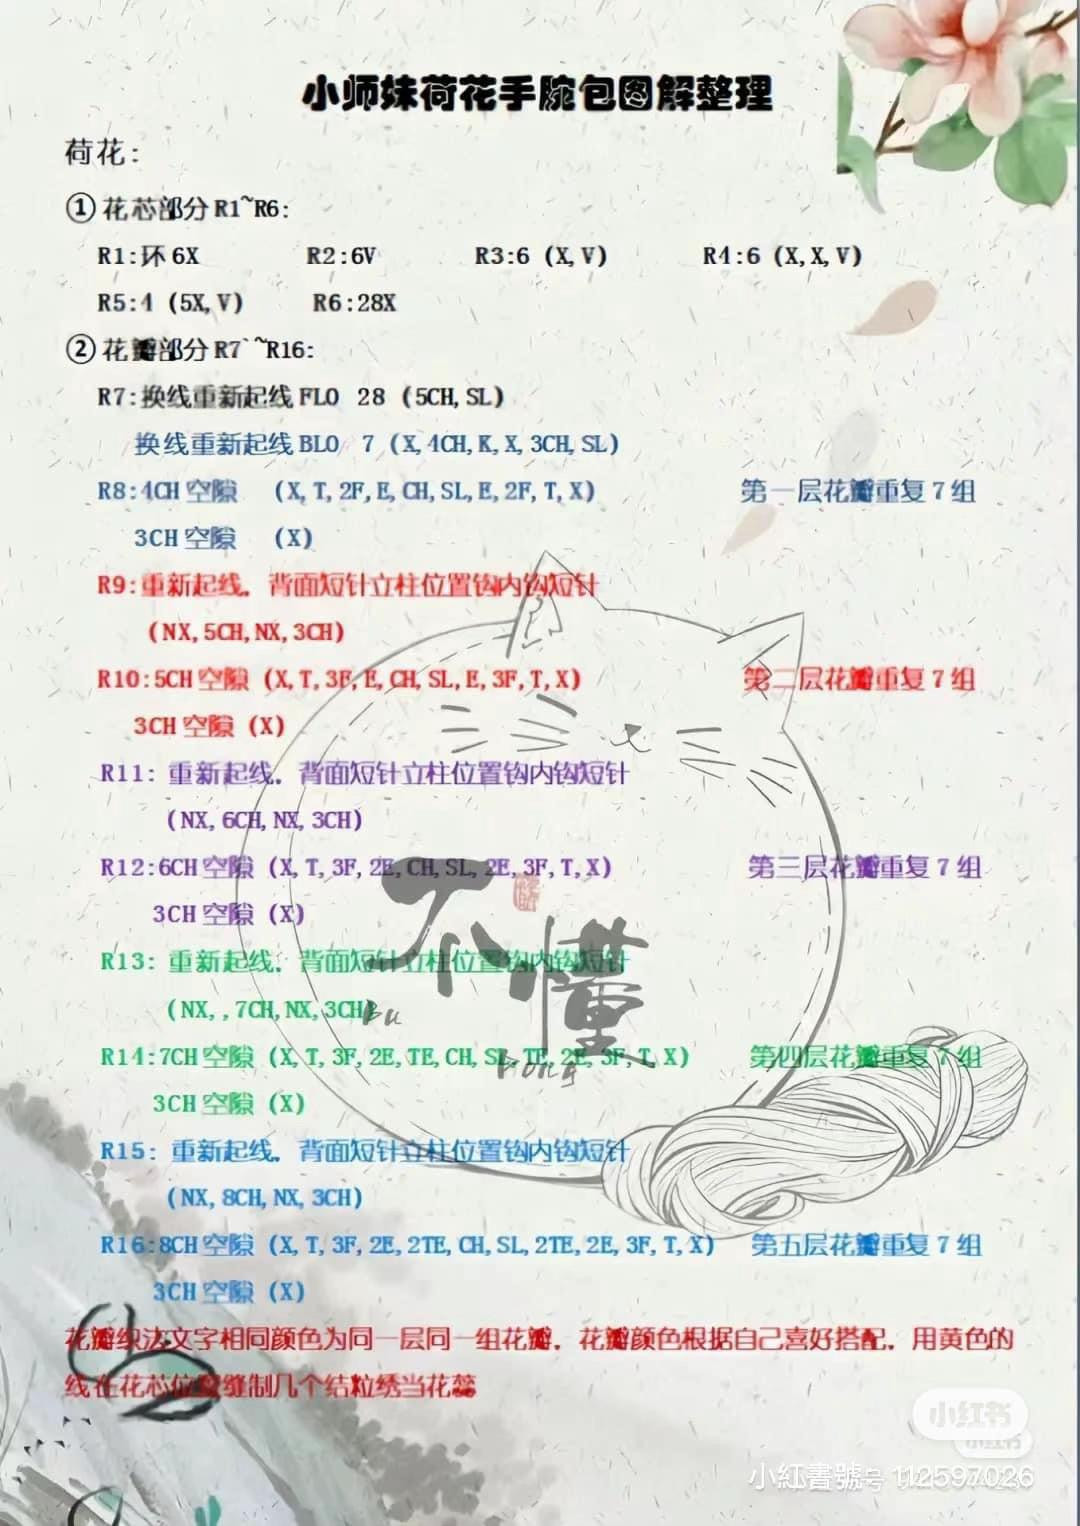 小师妹荷花手腕包图解整理
荷花:
① 花芯部分 R1~R6:
R1:环 6X R2:6V R3:6 (X,V) R4:6 (X,X,V)
R5:4 (5X,V) R6:28X
② 花瓣部分 R7`~R16:
R7:换线重新起线 FLO 28 (5CH,SL)
换线重新起线 BLO 7 (X,4CH,K,X,3CH,SL)
R8:4CH 空隙 (X,T,2F,E,CH,SL,E,2F,T,X) 第一层花瓣重复 7 组
3CH 空隙 (X)
R9:重新起线。背面短针立柱位置钩内钩短针
(NX,5CH,NX,3CH)
R10:5CH 空隙 (X,T,3F,E,CH,SL,E,3F,T,X) 第二层花瓣重复 7 组
3CH 空隙 (X)
R11: 重新起线。背面短针立柱位置钩内钩短针
(NX,6CH,NX,3CH)
R12:6CH 空隙 (X,T,3F,2E,CH,SL,2E,3F,T,X) 第三层花瓣重复 7 组
3CH 空隙 (X)
不懂
R13: 重新起线。背面短针立柱位置钩内钩短针
(NX,,7CH,NX,3CH)
bu
R14:7CH 空隙 (X,T,3F,2E,TE,CH,SL,TE,2E,3F,T,X) 第四层花瓣重复 7 组
3CH 空隙 (X)
R15: 重新起线。背面短针立柱位置钩内钩短针
(NX,8CH,NX,3CH)
R16:8CH 空隙 (X,T,3F,2E,2TE,CH,SL,2TE,2E,3F,T,X) 第五层花瓣重复 7 组
3CH 空隙 (X)
花瓣织法文字相同颜色为同一层同一组花瓣。花瓣颜色根据自己喜好搭配。用黄色的
线在花芯位置缝制几个结粒绣当花蕊
小红书
小红书
小紅書號号